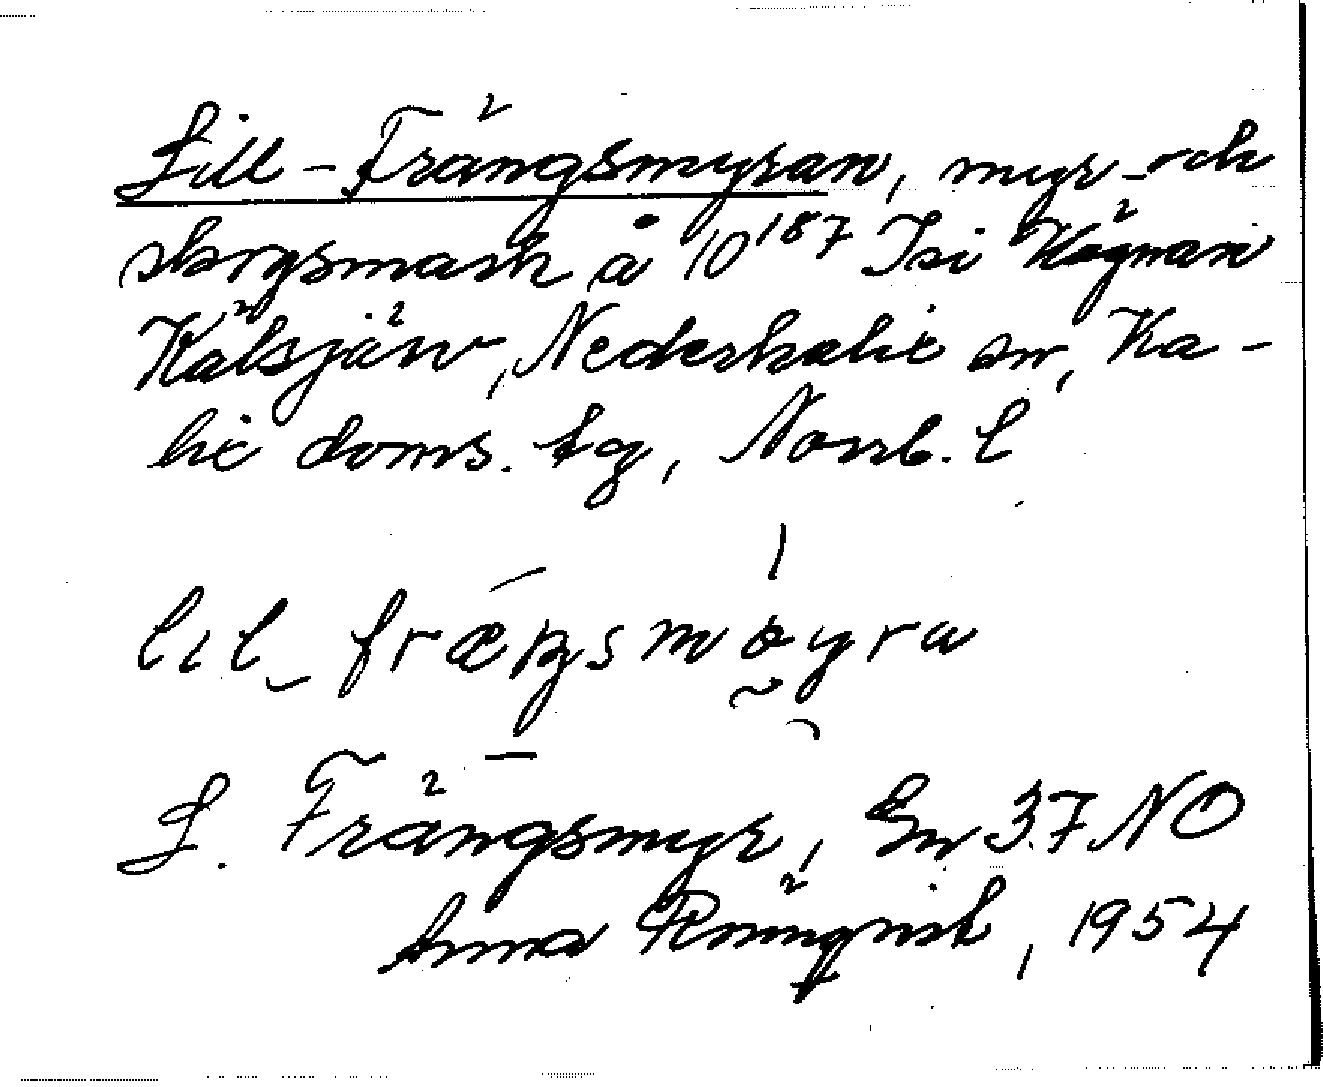 Lill-Frängsmyran, myr- och
skogsmark å 10¹⁸⁷ Isi
Kälsjärv, Nederkalix sn, Ka-
lix doms. tg, Norrb. l
lil_ fræŋsmøyra
L. Frängsmyr, En 37 NO
Anna Rönnqvist, 1954